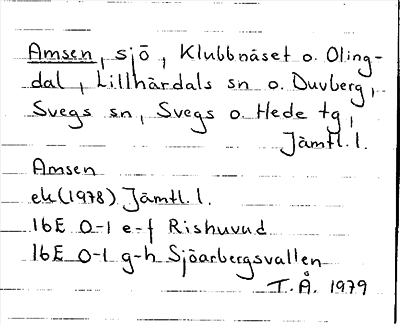 Amsen, sjö, Klubbnäset o. Oling-
dal, Lillhärdals sn o. Duvberg,
Svegs sn, Svegs o. Hede tg,
Jämtl. l.
Amsen
ek (1978) Jämtl. l.
16E 0-1 e-f Rishuvud
16E 0-1 g-h Sjöarbergsvallen
T. Å. 1979